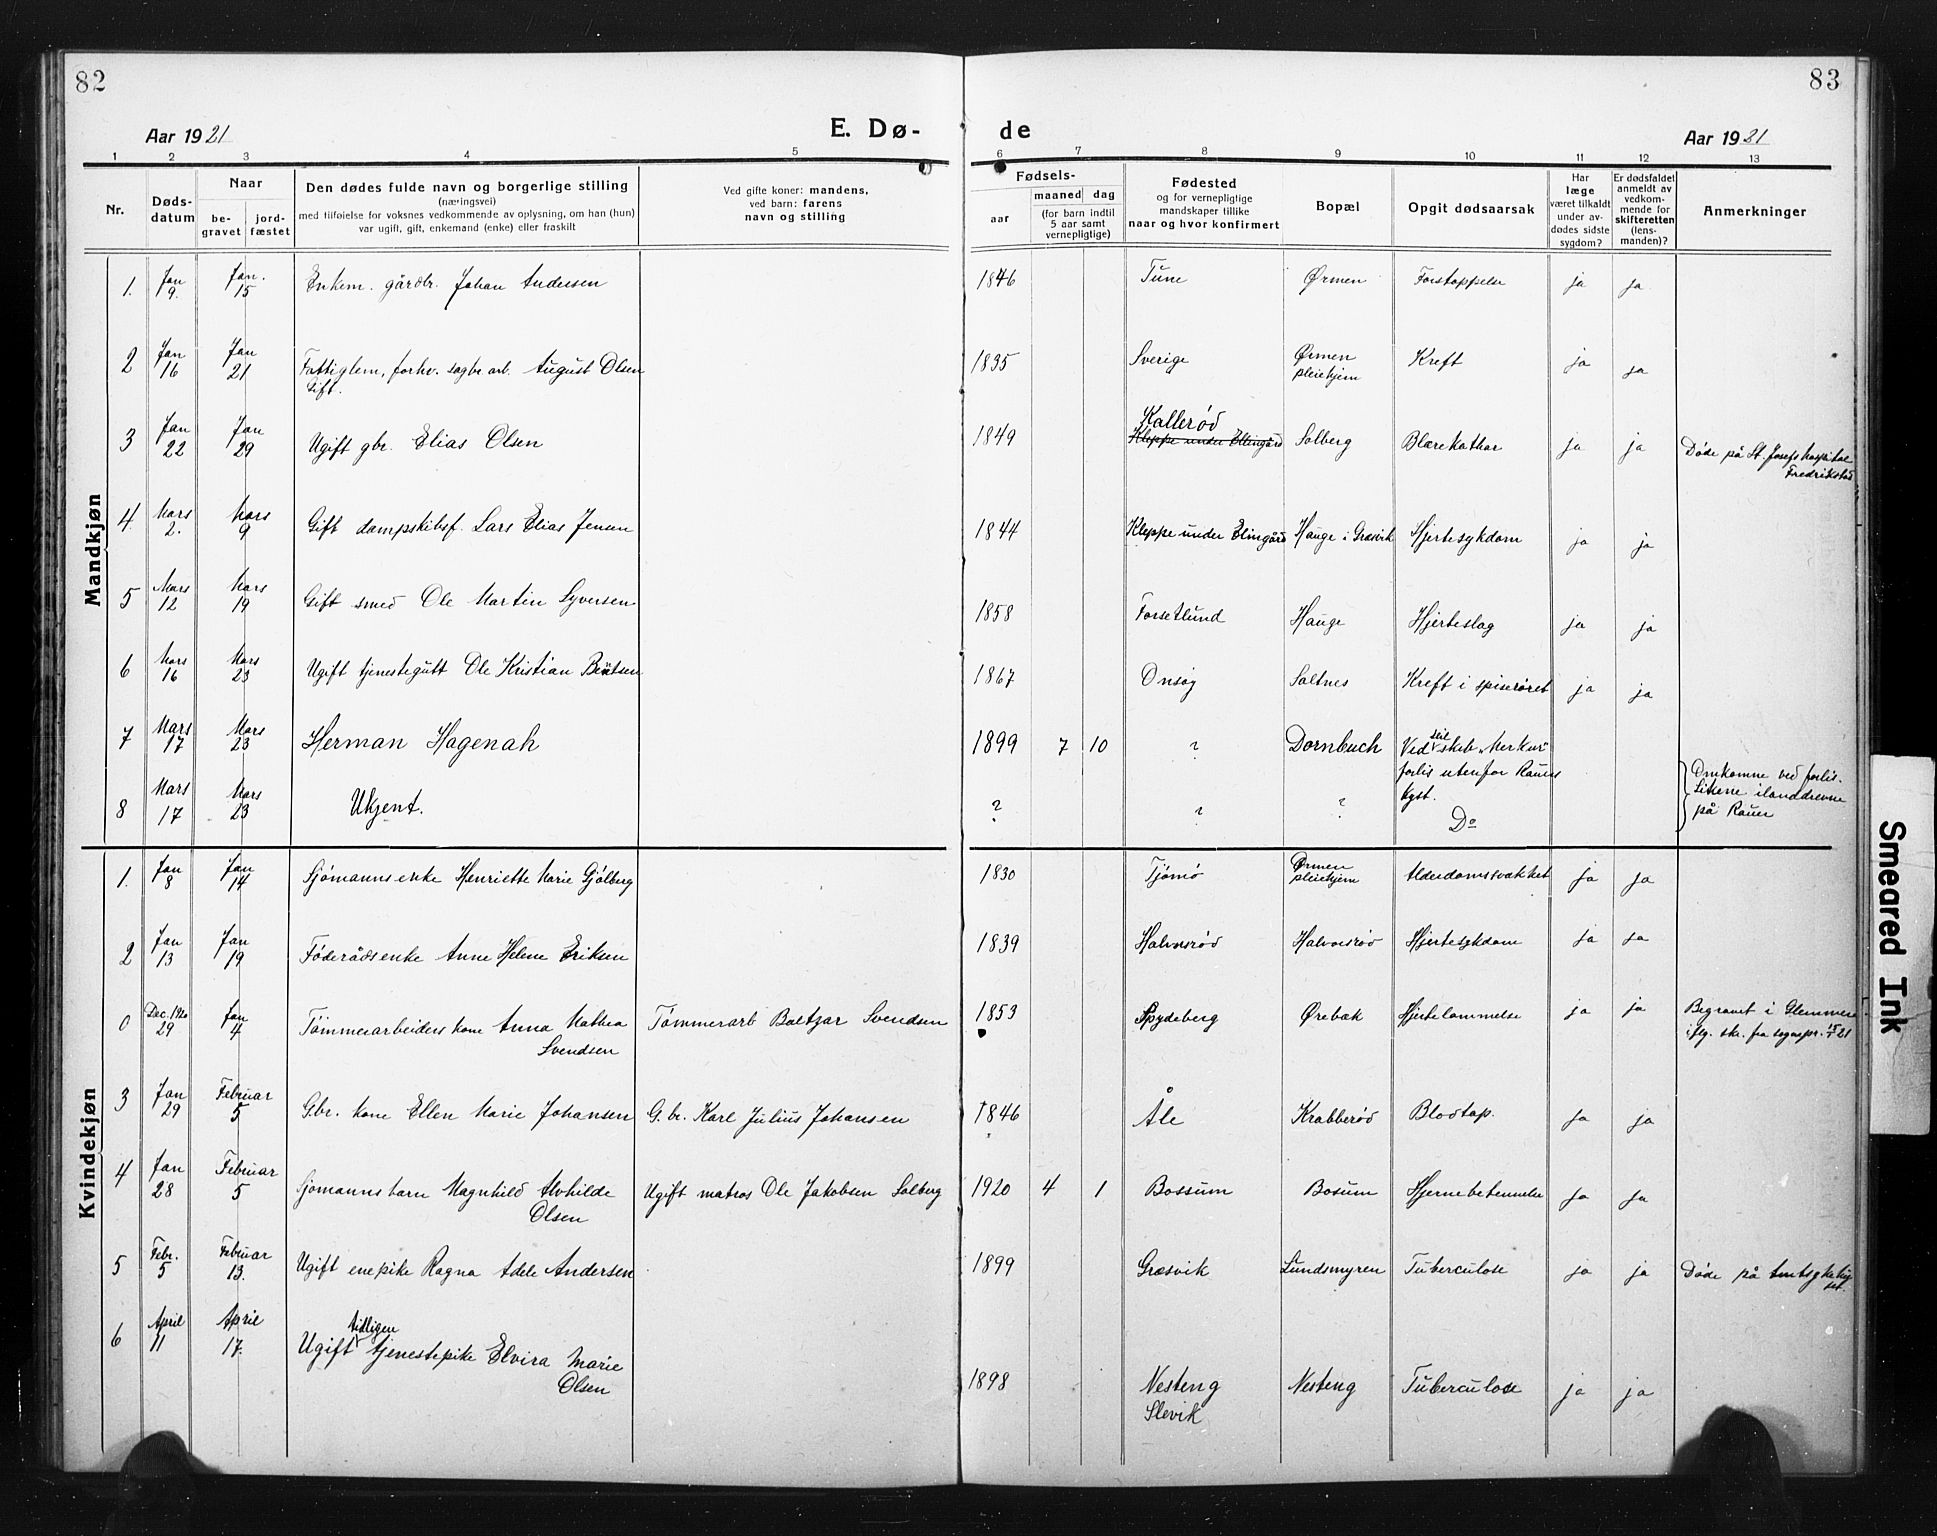 82
83
Aar 1921
E. Dø-
de
Aar 1921
1 2 3 4 5 6 7 8 9 10 11 12 13
Nr.
Døds-
datum
Naar
be-
gravet
jord-
fæstet
Den dødes fulde navn og borgerlige stilling
(næringsvei)
med tilføielse for voksnes vedkommende av oplysning, om han (hun)
var ugift, gift, enkemand (enke) eller fraskilt
Ved gifte koner: mandens,
ved barn: farens
navn og stilling
Fødsels-
aar
maaned dag
(for barn indtil
5 aar samt
vernepligtige)
Fødested
og for vernepligtige
mandskaper tillike
naar og hvor konfirmert
Bopæl
Opgit dødsaarsak
Har
læge
været tilkaldt
under av-
dødes sidste
sygdom?
Er dødsfaldet
anmeldt av
vedkom-
mende for
skifteretten
(lens-
manden)?
Anmerkninger
Mandkjøn
1. Jan 9. Jan. 15 Enkem. gårdbr. Johan Andersen 1846 Tune Ørmen Forstoppelse ja ja
2 Jan 16 Jan 21 Fattiglem, forhv. sagbr. arb. August Olsen 1835 Sverige Ørmen pleiehjem Kreft ja ja
Gift.
3 Jan 22 Jan 29 Ugift gbr. Elias Olsen 1849 Kallerød Kleppe under Ellingård Solberg Blærekathar ja ja Døde på St. Josefs hospital
Fredrikstad
4 Mars 2. Mars 9 Gift dampskibsf. Lars Elias Jensen 1844 Kleppe under Elingård Hauge i Græsvik Hjertesykdom ja ja
5 Mars 12 Mars 19 Gift smed Ole Martin Syversen 1858 Forsetlund Hauge Hjerteslag ja ja
6 Mars 16 Mars 23 Ugift tjenestegutt Ole Kristian Berntsen 1867 Onsøy Saltnes Kreft i spiserøret ja ja
7 Mars 17 Mars 23 Herman Hagenah 1899 7 10 ? Dornbuch Ved seilskib "Merkur"
forlis utenfor Rauer
kyst.
8 Mars 17 Mars 23 Ukjent. ? ? ? Do
Omkomne ved forlis.
Likene ilanddrevne
på Rauer
Kvindekjøn
1. Jan 8 Jan 14 Sjømannsenke Henriette Marie Gjølberg 1830 Tjømø Ørmen pleiehjem Alderdomssvakhet ja ja
2 Jan 13 Jan 19 Føderådsenke Anne Helene Eriksen 1839 Halvorsrød Halvorsrød Hjertesykdom ja ja
0 Dec. 1920 29 Jan 4 Tømmerarbeiders kone Anna Mathea Tømmerarb Baltzar Svendsen 1853 Spydeberg Ørebæk Hjertelammelse ja ja Begravet i Glemmen
Svendsen
iflg. skr. fra sognepr. 15/7 21
3 Jan 29 Februar 5 Gbr. kone Ellen Marie Johansen G. br. Karl Julius Johansen 1846 Åle Krabberød Blodtap. ja ja
4 Jan 28 Februar 5 Sjømannsbarn Magnhild Alvhilde Ugift matros Ole Jakobsen Solberg 1920 4 1 Bossum Bosum Hjernebetennelse ja ja
Olsen
5 Febr. 5 Februar 13. Ugift enepike Ragna Adele Andersen 1899 Græsvik Lundsmyren Tuberculose ja ja Døde på
6 April 11 April 17. Ugift tidligere tjenestepike Elvira Marie
Olsen 1898 Nesteng Nesteng Tuberculose ja ja
Slevik
Smeared Ink